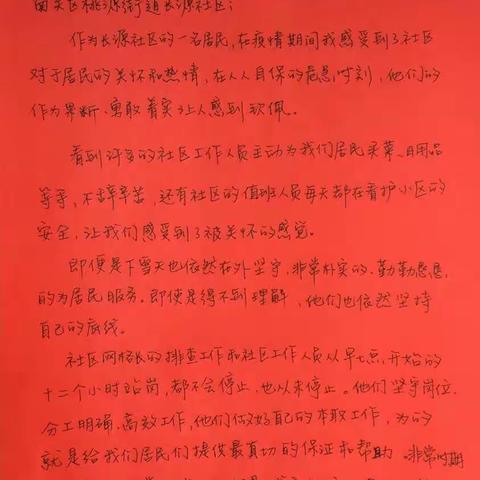 关区桃源街道长源社区：
作为长源社区的一名居民，在疫情期间我感受到了社区
对于居民的关怀和热情，在人人自保的危急时刻，他们的
作为果断、勇敢着实让人感到钦佩。
看到许多的社区工作人员主动为我们居民买菜、日用品
等等，不辞辛苦，还有社区的值班人员每天都在看护小区的
安全，让我们感受到了被关怀的感觉。
即便是下雪天也依然在外坚守，非常朴实的、勤勤恳恳
的为居民服务。即使是得不到理解，他们也依然坚持
自己的底线。
社区网格长的排查工作和社区工作人员从早七点开始的
十二个小时站岗，都不会停止，也从来停止。他们坚守岗位，
分工明确、高效工作，他们做好自己的本职工作，为的
就是给我们居民们提供最真切的保证和帮助。非常时期